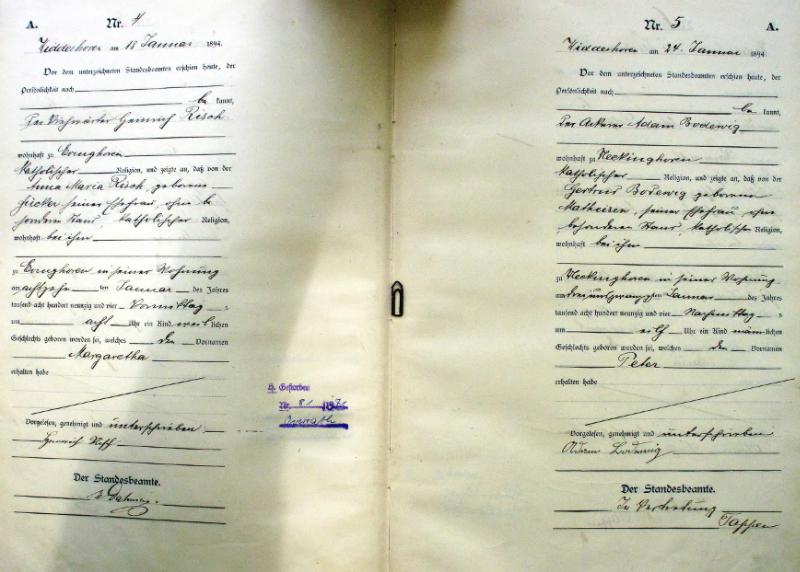 A. Nr. 4
am 18 Januar 1894.
Vor dem unterzeichneten Standesbeamten erschien heute, der
Persönlichkeit nach
be kannt,
Heinrich Risch
wohnhaft zu
katholischer Religion, und zeigte an, daß von der
Anna Maria Risch, geborene
seiner Ehefrau, ohne be
sonderen Stand, katholischer Religion,
wohnhaft bei ihm
zu in seiner Wohnung
am achtzehn ten Januar des Jahres
tausend acht hundert neunzig und vier Vormittag s
um acht Uhr ein Kind weib lichen
Geschlechts geboren worden sei, welches den Vornamen
Margaretha
erhalten habe
Vorgelesen, genehmigt und unterschrieben
Heinrich
Der Standesbeamte.
H. Gestorben
Nr. 81
Nr. 5 A.
am 24 Januar 1894
Vor dem unterzeichneten Standesbeamten erschien heute, der
Persönlichkeit nach
be kannt,
Der Ackerer Adam Bodewig
wohnhaft zu Neckinghoven
katholischer Religion, und zeigte an, daß von der
Gertrud Bodewig geborene
Matheisen, seiner Ehefrau, ohne
besonderen Stand, katholischer Religion,
wohnhaft bei ihm
zu Neckinghoven in seiner Wohnung
am dreiundzwanzigsten Januar des Jahres
tausend acht hundert neunzig und vier Nachmittag s
um eilf Uhr ein Kind männ lichen
Geschlechts geboren worden sei, welches den Vornamen
Peter
erhalten habe
Vorgelesen, genehmigt und unterschrieben
Adam Bodewig
Der Standesbeamte.
In Vertretung
Tappen